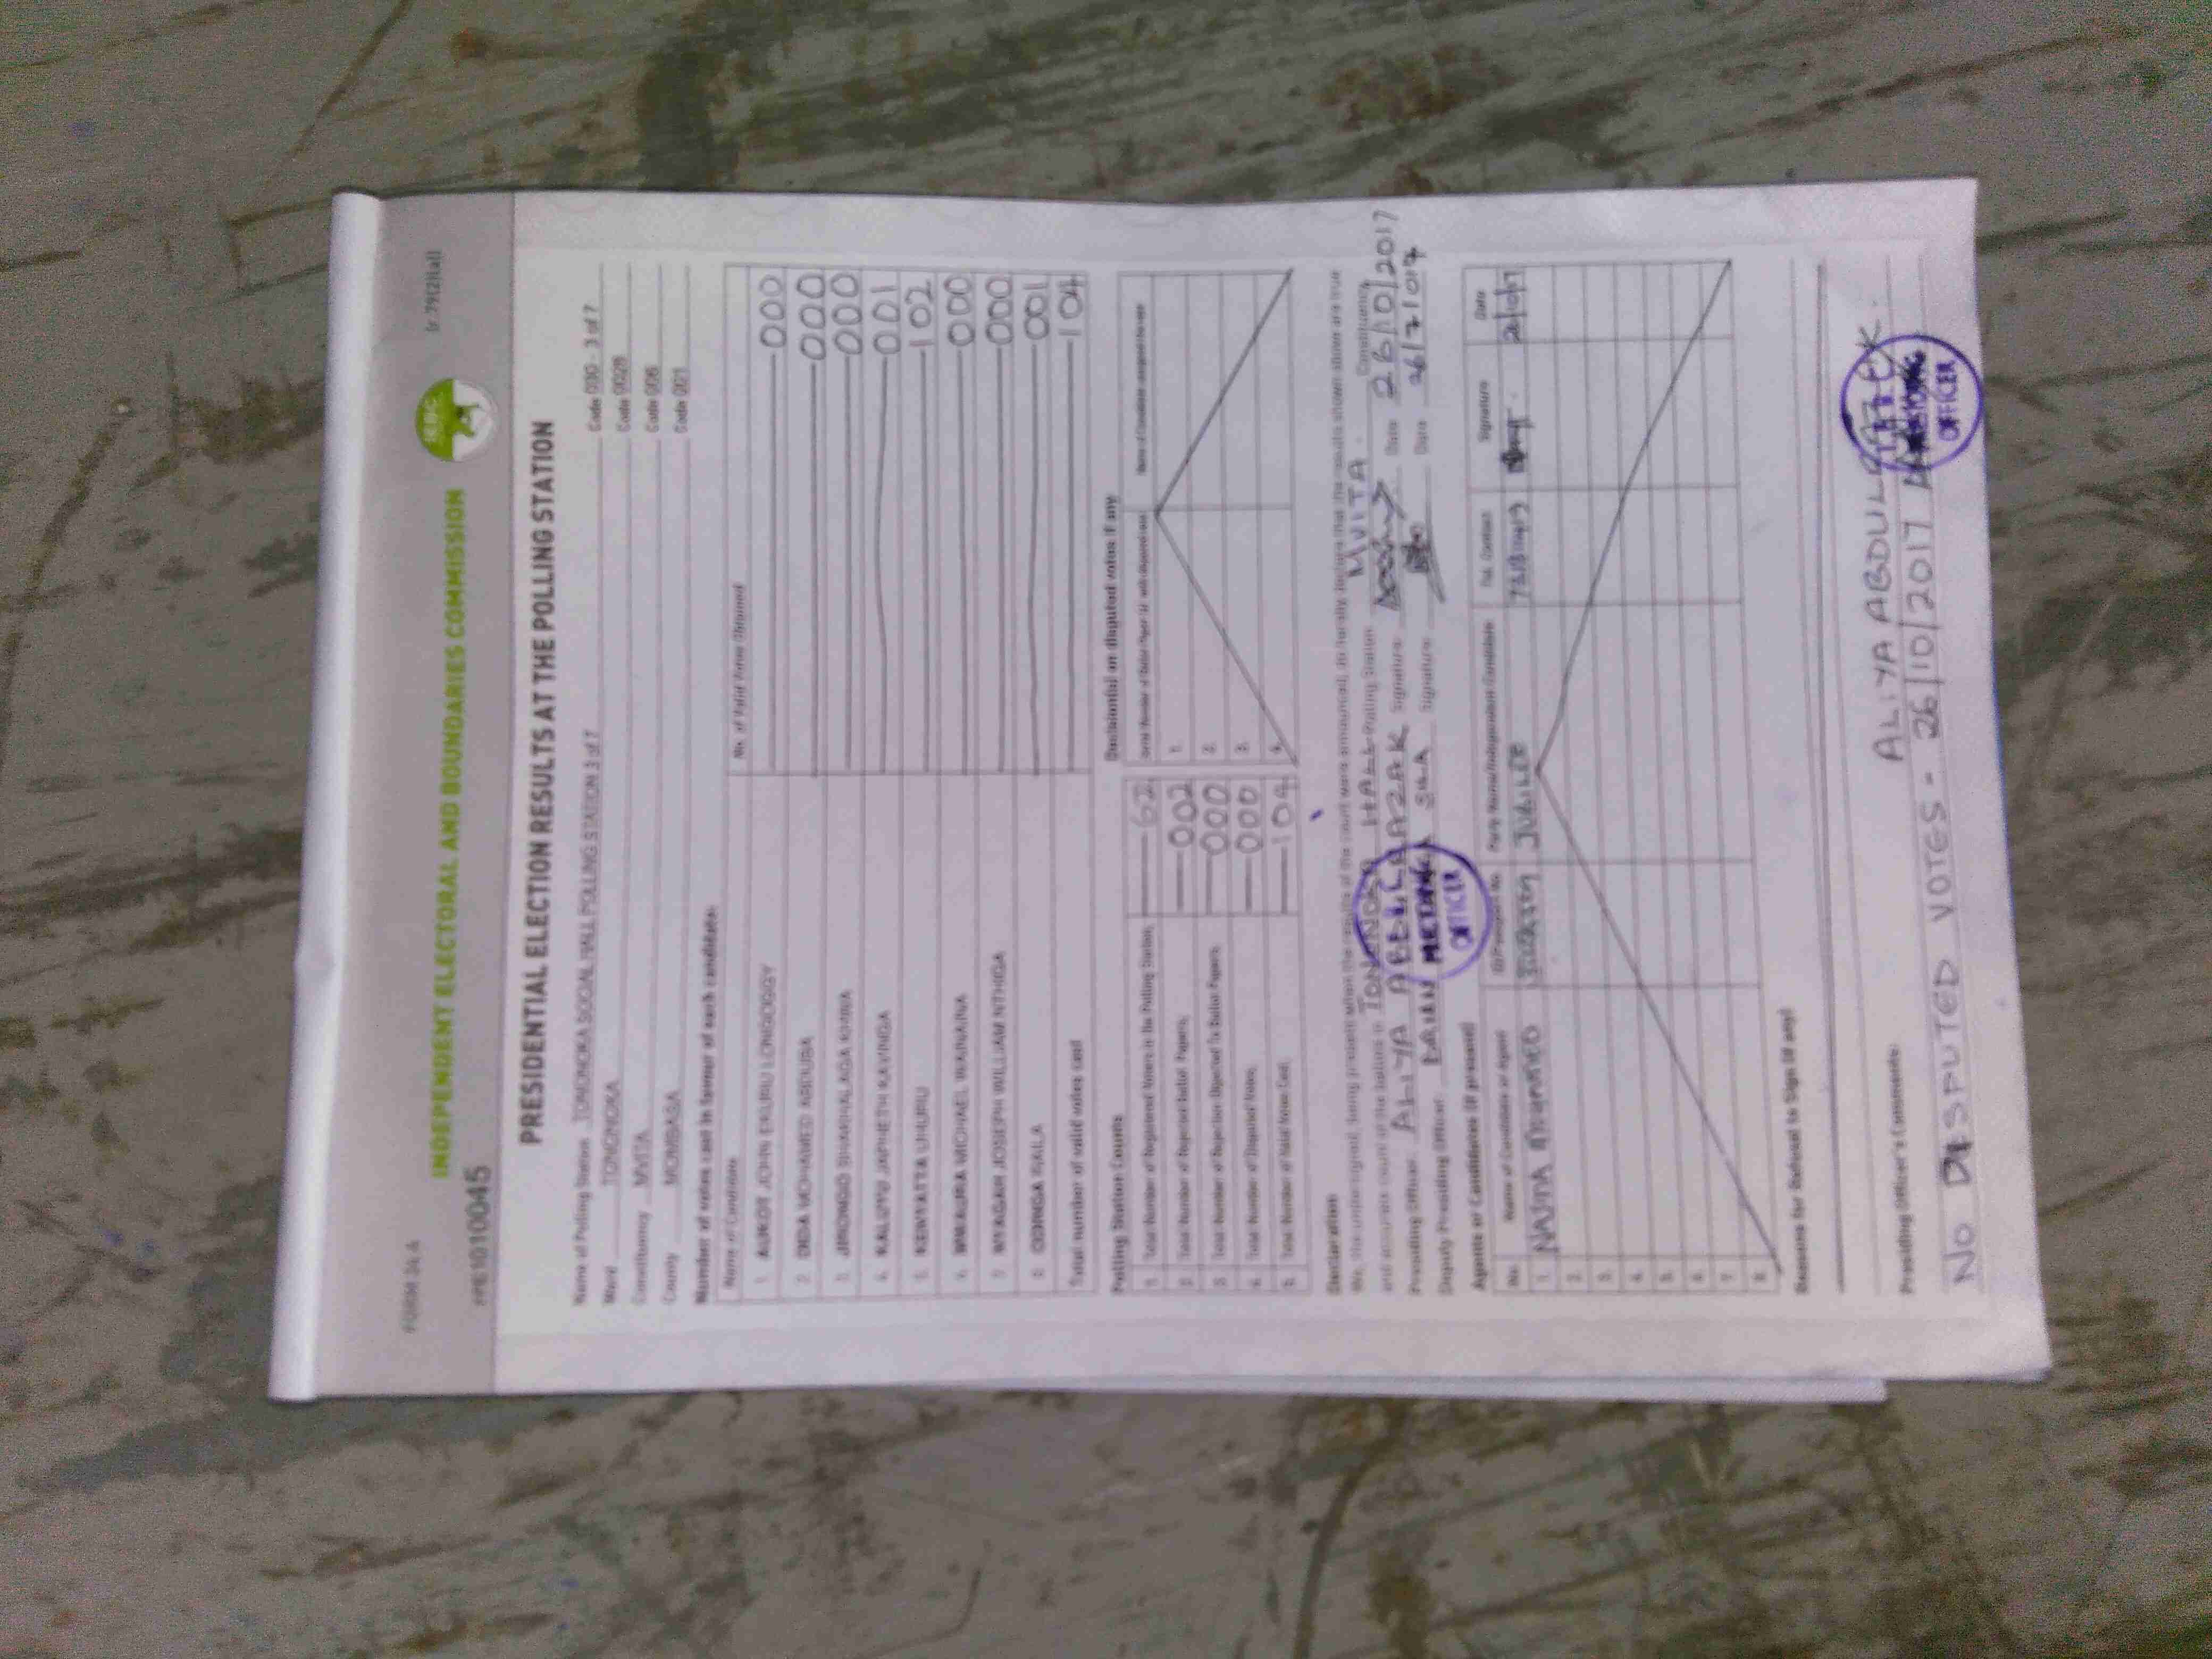 FORM 34 A (r 79(2)(a))
INDEPENDENT ELECTORAL AND BOUNDARIES COMMISSION
IEBC
PRESIDENTIAL ELECTION RESULTS AT THE POLLING STATION
Name of Polling Station TONONOKA SOCIAL HALL POLLING STATION 3 of 7 Code 030 - 3 of 7
Ward TONONOKA Code 0028
Constituency MVITA Code 006
County MOMBASA Code 001
Number of votes cast in favour of each candidate:
Name of Candidate No. of Valid Votes Obtained
1. AUKOT JOHN EKURU LONGOGGY 000
2. DIDA MOHAMED ABDUBA 000
3. JIRONGO SHAKHALAGA KHWA 000
4. KALUYU JAPHETH KAVINGA 001
5. KENYATTA UHURU 102
6. MWAURA MICHAEL WAINAINA 000
7. NYAGAH JOSEPH WILLIAM NTHIGA 000
8. ODINGA RAILA 001
Total number of valid votes cast 104
Polling Station Counts
Decision(s) on disputed votes if any
1. Total Number of Registered Voters in the Polling Station
2. Total Number of Rejected Ballot Papers 002 1.
3. Total Number of Rejection Objected To Ballot Papers 000 2.
4. Total Number of Disputed Votes 000 3.
5. Total Number of Valid Votes Cast 104 4.
Declaration
We, the undersigned, being present when the results of the count were announced, do hereby declare that the results shown above are true
and accurate count of the ballots in TONONOKA HALL Polling Station MVITA Constituency
Presiding Officer ALIYA ABDULRAZAK Signature Date 26/10/2017
Deputy Presiding Officer BRIAN Signature Date
Agents or Candidates (if present)
No. Name of Candidate or Agent ID/Passport No. Party Name/Independent Candidate Tel. Contact Signature Date
1. JUBILEE
2.
3.
4.
5.
6.
7.
8.
PRESIDING
OFFICER
Reasons for Refusal to Sign (if any)
Presiding Officer's Comments:
ALIYA ABDULRAZAK.
NO DISPUTED VOTES - 26/10/2017
PRESIDING
OFFICER